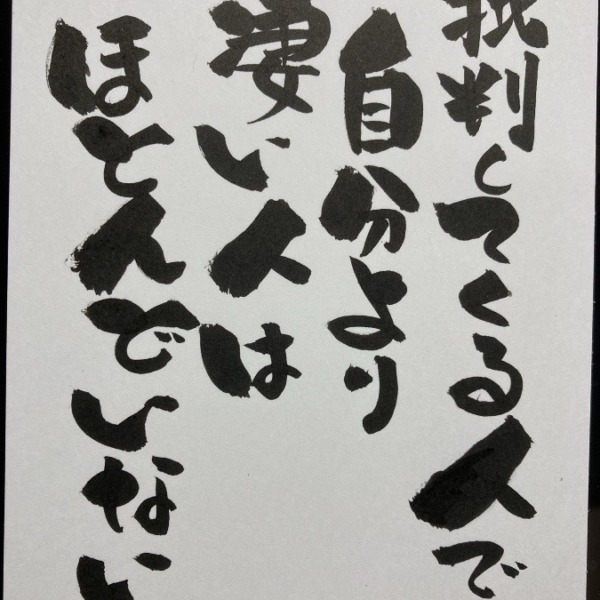 批判してくる人で
自分より
凄い人は
ほとんどいない